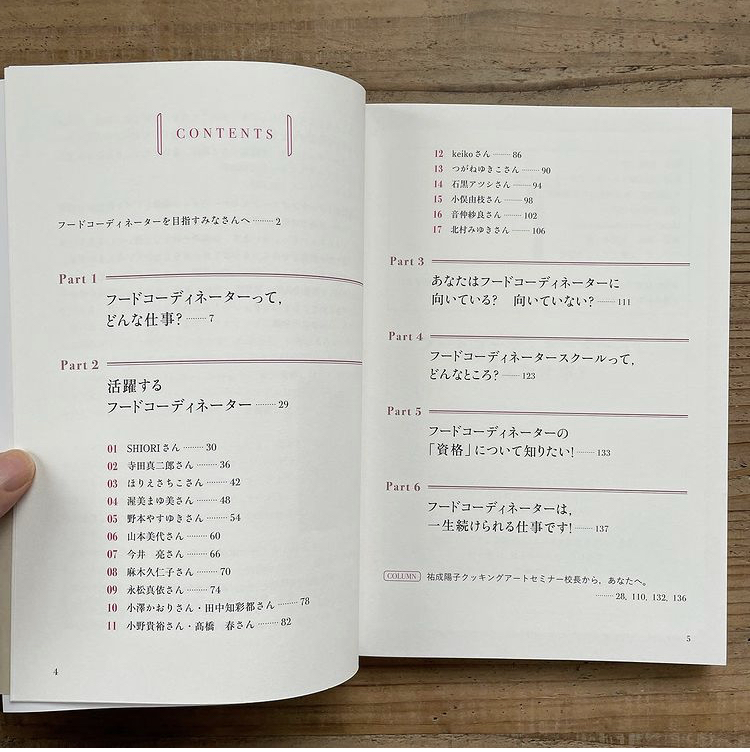 CONTENTS
フードコーディネーターを目指すみなさんへ ……… 2
Part 1
フードコーディネーターって、
どんな仕事? ……… 7
Part 2
活躍する
フードコーディネーター ……… 29
01 SHIORIさん ……… 30
02 寺田真二郎さん ……… 36
03 ほりえさちこさん ……… 42
04 渥美まゆ美さん ……… 48
05 野本やすゆきさん ……… 54
06 山本美代さん ……… 60
07 今井 亮さん ……… 66
08 麻木久仁子さん ……… 70
09 永松真依さん ……… 74
10 小澤かおりさん・田中知彩都さん ……… 78
11 小野貴裕さん・髙橋 春さん ……… 82
4
12 keikoさん ……… 86
13 つがねゆきこさん ……… 90
14 石黒アツシさん ……… 94
15 小俣由枝さん ……… 98
16 音仲紗良さん ……… 102
17 北村みゆきさん ……… 106
Part 3
あなたはフードコーディネーターに
向いている? 向いていない? ……… 111
Part 4
フードコーディネータースクールって、
どんなところ? ……… 123
Part 5
フードコーディネーターの
「資格」について知りたい! ……… 133
Part 6
フードコーディネーターは、
一生続けられる仕事です! ……… 137
COLUMN 祐成陽子クッキングアートセミナー校長から、あなたへ。
……… 28, 110, 132, 136
5